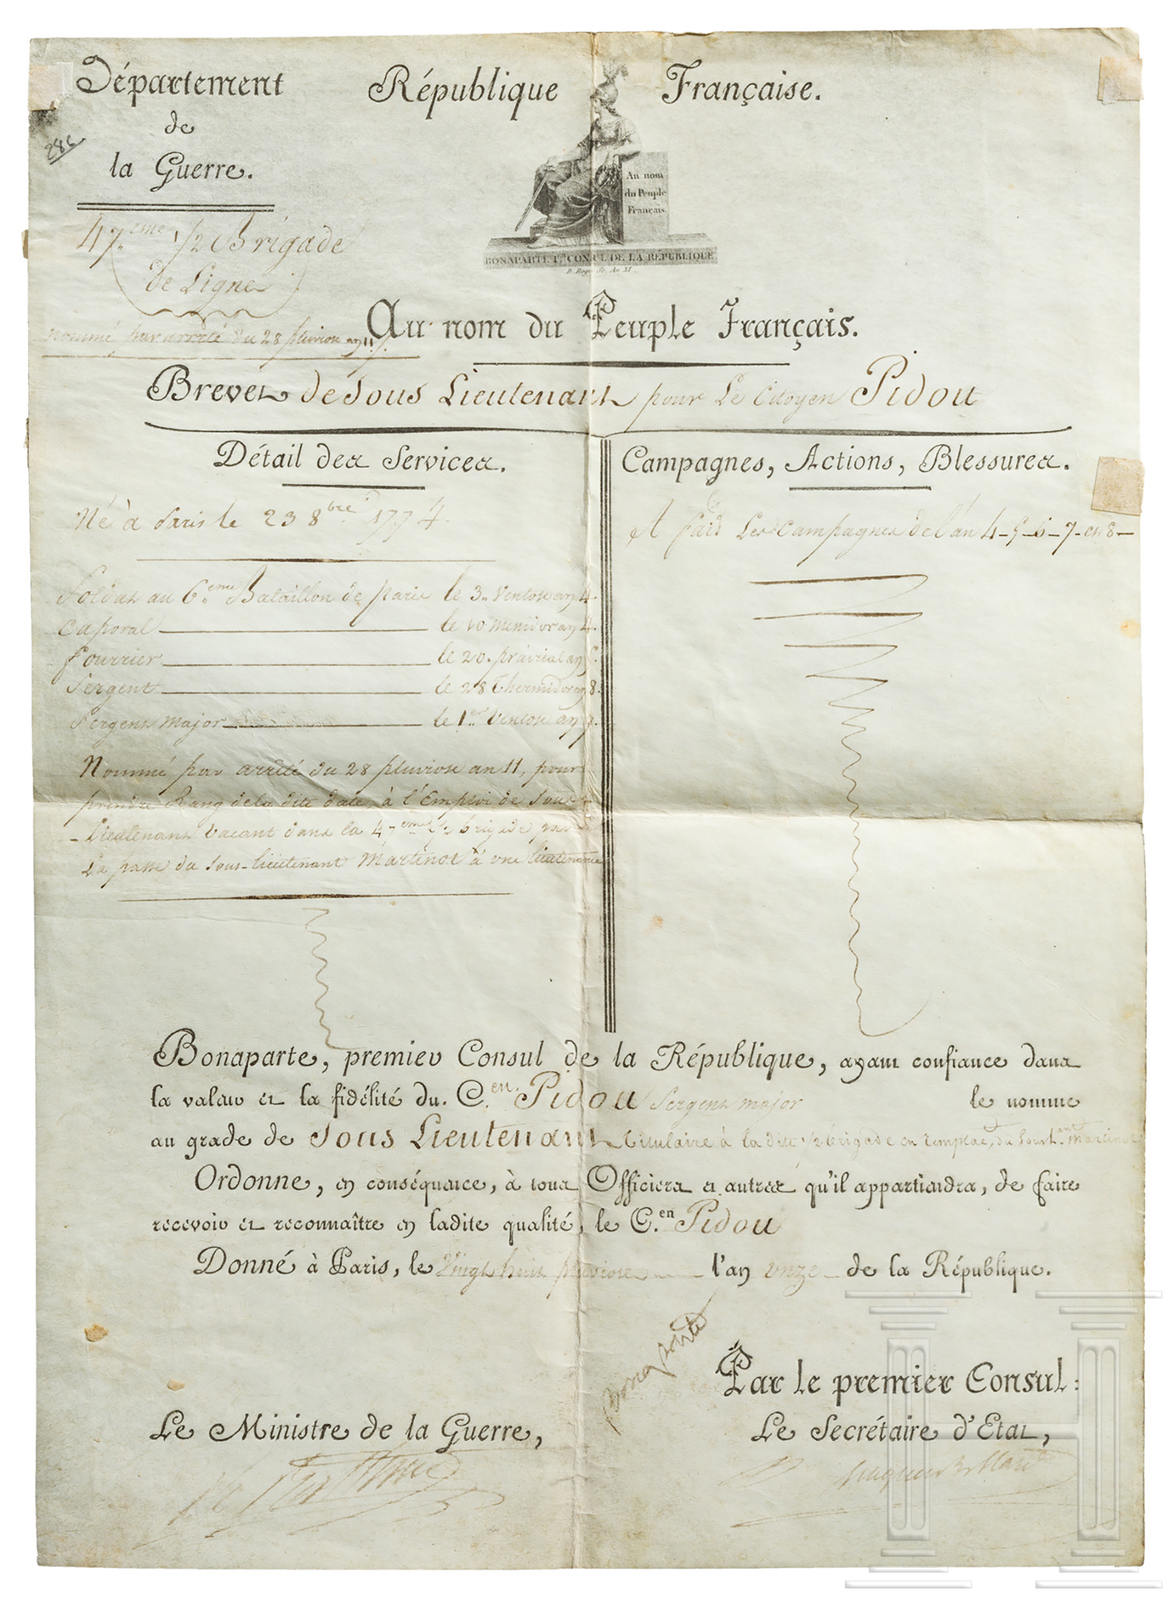 Département
de
la Guerre.
286
République Française.
Au nom
du Peuple
Français.
BONAPARTE 1.er CONSUL DE LA RÉPUBLIQUE
47.eme 1/2 Brigade
de Ligne
nommé par arrêté du 28 pluviose an 11.
Au nom du Peuple Français.
Brevet de Sous Lieutenant pour Le Citoyen Pidou
Détail des Services.
Né à Paris le 23 8bre 1774.
Soldat au 6.eme Bataillon de Paris le 3. Ventose an 4.
Caporal le 10 an 4.
fourrier le 20. prairial an
Sergent le 28 Thermidor an 8.
Sergent Major le 1.er Ventose an 9.
Nommé par arrêté du 28 pluviose an 11, pour
prendre Rang de la dite date, à l'Emploi de Sous
-Lieutenant vacant dans la 47eme 1/2 brigade par
la passe du Sous-Lieutenant Martinot à une lieutenance
Campagnes, Actions, Blessures.
A fait Les Campagnes de l'an 4-5-6-7-et 8-
Bonaparte, premier Consul de la République, ayant confiance dans
la valeur et la fidélité du C.en Pidou Sergent major le nomme
au grade de Sous Lieutenant titulaire à la dite 1/2 brigade en remplact. du Sous Lnt. Martinot
Ordonne, en conséquence, à tous Officiers et autres qu'il appartiendra, de faire
recevoir et reconnaître en ladite qualité, le C.en Pidou
Donné à Paris, le Vingt huit pluviose l'an onze de la République.
Bonaparte
Par le premier Consul:
Le Ministre de la Guerre,
Le Secrétaire d'Etat,
Hugues B. Maret